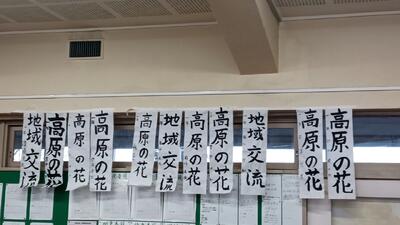 地域交流
高原の花
高原の花
高原の花
高原の花
地域交流
高原の花
高原の花
地域交流
高原の花
高原の花